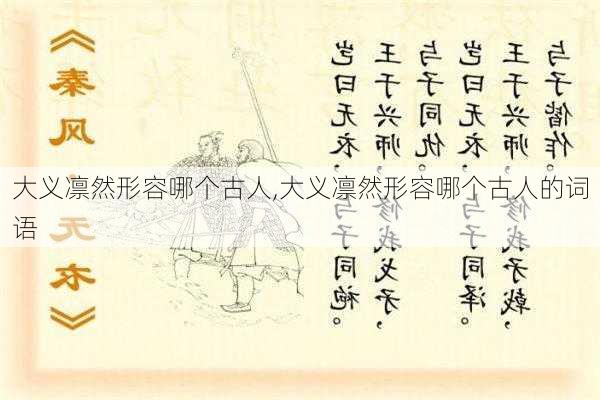 《秦风·无衣》
岂曰无衣，与子同袍。
王于兴师，修我戈矛，
与子同仇。
岂曰无衣，与子同泽。
王于兴师，修我矛戟，
与子偕作。
大义凛然形容哪个古人,大义凛然形容哪个古人的词
语